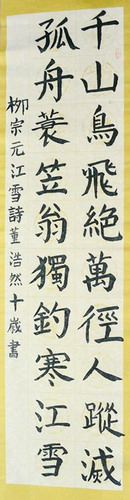 千山鳥飛絕萬徑人蹤滅
孤舟蓑笠翁獨釣寒江雪
柳宗元江雪詩董浩然十歲書